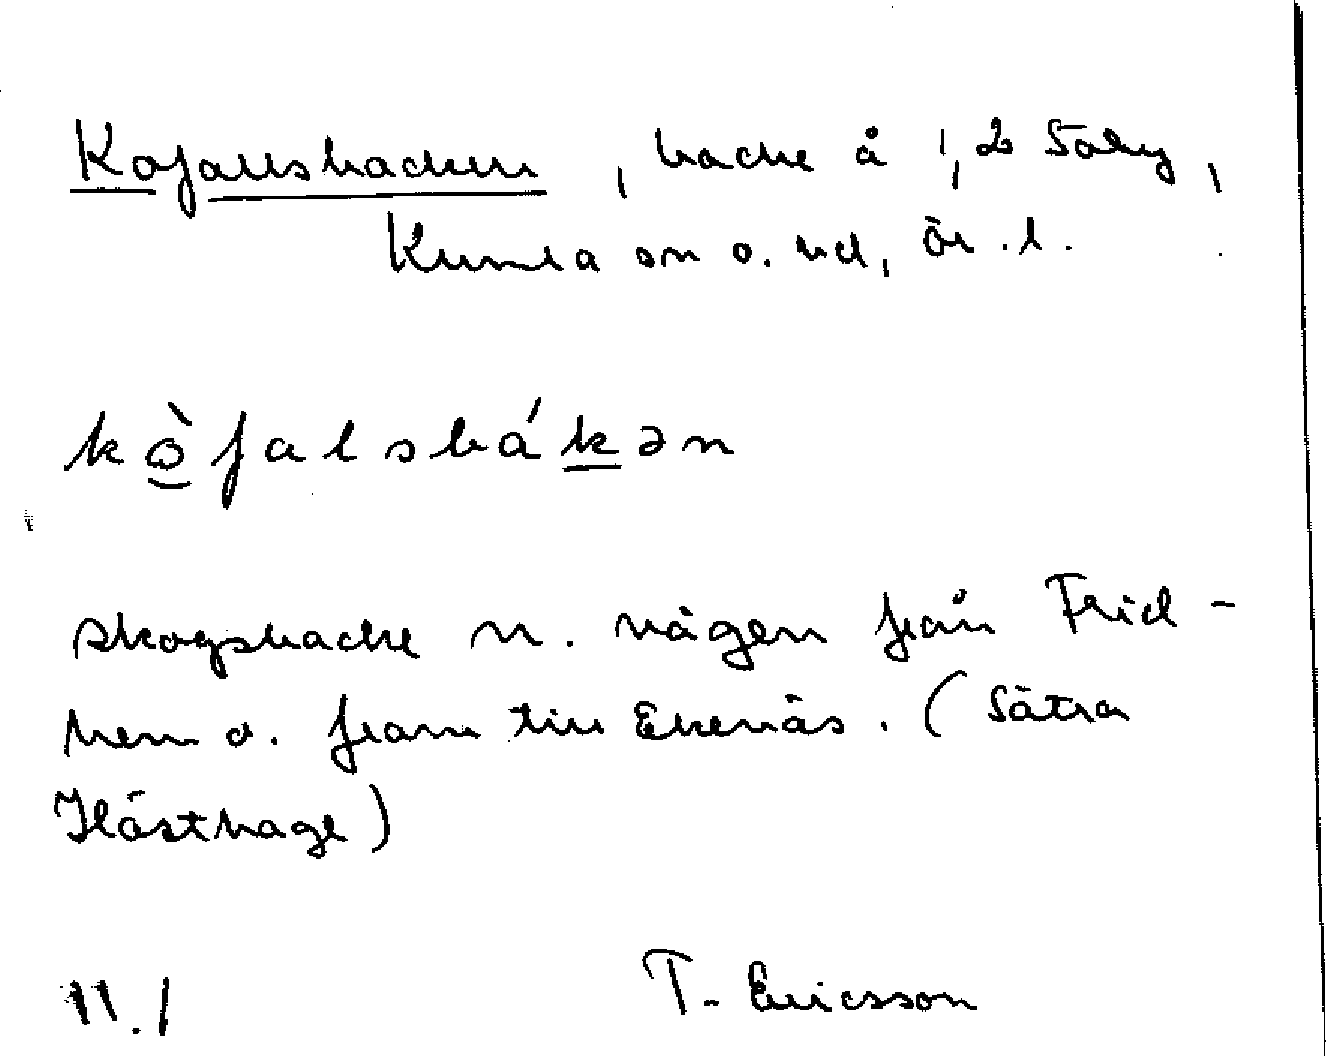 Kofallsbacken, backe å 1,2 Säby,
Kumla sn o. hd, Ör. l.
kò̱falsbákən
skogsbacke n. vägen från Frid-
hem o. fram till Ekenäs. (Sätra
Hästhage)
11.1 T. Ericsson